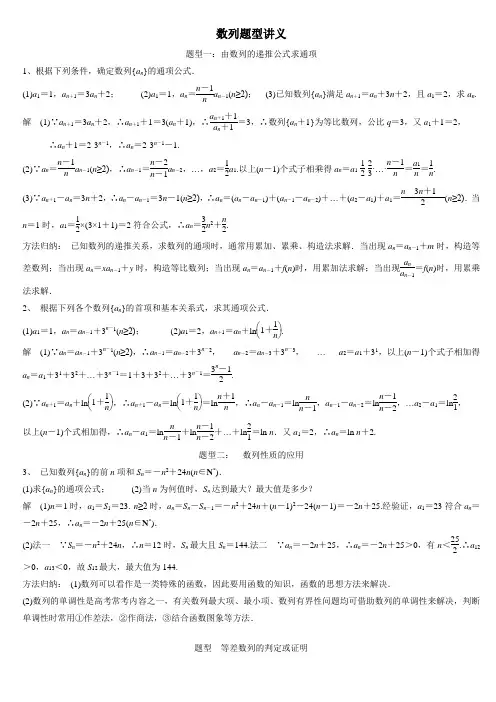 数列题型讲义
题型一：由数列的递推公式求通项
1、根据下列条件，确定数列{aₙ}的通项公式．
(1)a₁＝1，aₙ₊₁＝3aₙ＋2； (2)a₁＝1，aₙ＝(n－1)/n aₙ₋₁(n≥2)； (3)已知数列{aₙ}满足aₙ₊₁＝aₙ＋3n＋2，且a₁＝2，求aₙ.
解 (1)∵aₙ₊₁＝3aₙ＋2，∴aₙ₊₁＋1＝3(aₙ＋1)，∴(aₙ₊₁＋1)/(aₙ＋1)＝3，∴数列{aₙ＋1}为等比数列，公比q＝3，又a₁＋1＝2，
∴aₙ＋1＝2·3ⁿ⁻¹，∴aₙ＝2·3ⁿ⁻¹－1.
(2)∵aₙ＝(n－1)/n aₙ₋₁(n≥2)，∴aₙ₋₁＝(n－2)/(n－1) aₙ₋₂，…，a₂＝1/2 a₁.以上(n－1)个式子相乘得aₙ＝a₁·1/2·2/3·…·(n－1)/n＝a₁/n＝1/n.
(3)∵aₙ₊₁－aₙ＝3n＋2，∴aₙ－aₙ₋₁＝3n－1(n≥2)，∴aₙ＝(aₙ－aₙ₋₁)＋(aₙ₋₁－aₙ₋₂)＋…＋(a₂－a₁)＋a₁＝n 3n＋1/2(n≥2)．当
n＝1时，a₁＝1/2×(3×1＋1)＝2符合公式，∴aₙ＝3/2 n²＋n/2.
方法归纳： 已知数列的递推关系，求数列的通项时，通常用累加、累乘、构造法求解．当出现aₙ＝aₙ₋₁＋m时，构造等
差数列；当出现aₙ＝xaₙ₋₁＋y时，构造等比数列；当出现aₙ＝aₙ₋₁＋f(n)时，用累加法求解；当出现aₙ/aₙ₋₁＝f(n)时，用累乘
法求解．
2、 根据下列各个数列{aₙ}的首项和基本关系式，求其通项公式．
(1)a₁＝1，aₙ＝aₙ₋₁＋3ⁿ⁻¹(n≥2)； (2)a₁＝2，aₙ₊₁＝aₙ＋ln(1＋1/n).
解 (1)∵aₙ＝aₙ₋₁＋3ⁿ⁻¹(n≥2)，∴aₙ₋₁＝aₙ₋₂＋3ⁿ⁻²， aₙ₋₂＝aₙ₋₃＋3ⁿ⁻³， … a₂＝a₁＋3¹，以上(n－1)个式子相加得
aₙ＝a₁＋3¹＋3²＋…＋3ⁿ⁻¹＝1＋3＋3²＋…＋3ⁿ⁻¹＝(3ⁿ－1)/2.
(2)∵aₙ₊₁＝aₙ＋ln(1＋1/n)，∴aₙ₊₁－aₙ＝ln(1＋1/n)＝ln (n＋1)/n，∴aₙ－aₙ₋₁＝ln n/(n－1)，aₙ₋₁－aₙ₋₂＝ln (n－1)/(n－2)，…a₂－a₁＝ln 2/1，
以上(n－1)个式相加得，∴aₙ－a₁＝ln n/(n－1)＋ln (n－1)/(n－2)＋…＋ln 2/1＝ln n．又a₁＝2，∴aₙ＝ln n＋2.
题型二： 数列性质的应用
3、 已知数列{aₙ}的前n项和Sₙ＝－n²＋24n(n∈N*)．
(1)求{aₙ}的通项公式； (2)当n为何值时，Sₙ达到最大？最大值是多少？
解 (1)n＝1时，a₁＝S₁＝23. n≥2时，aₙ＝Sₙ－Sₙ₋₁＝－n²＋24n＋(n－1)²－24(n－1)＝－2n＋25.经验证，a₁＝23符合aₙ＝
－2n＋25，∴aₙ＝－2n＋25(n∈N*)．
(2)法一 ∵Sₙ＝－n²＋24n，∴n＝12时，Sₙ最大且Sₙ＝144.法二 ∵aₙ＝－2n＋25，∴aₙ＝－2n＋25＞0，有n＜25/2.∴a₁₂
＞0，a₁₃＜0，故S₁₂最大，最大值为144.
方法归纳： (1)数列可以看作是一类特殊的函数，因此要用函数的知识，函数的思想方法来解决．
(2)数列的单调性是高考常考内容之一，有关数列最大项、最小项、数列有界性问题均可借助数列的单调性来解决，判断
单调性时常用①作差法，②作商法，③结合函数图象等方法．
题型 等差数列的判定或证明